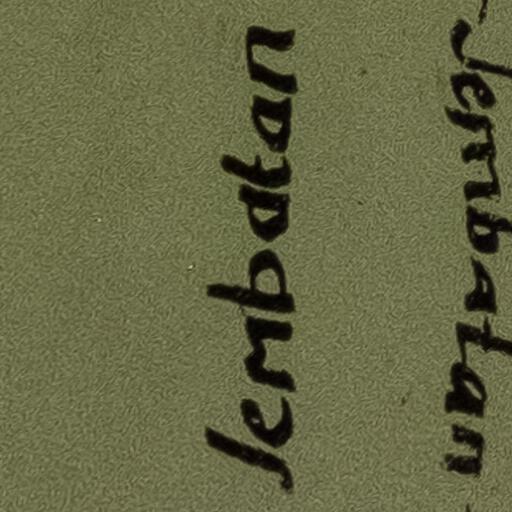 Jembatan
Jembatan